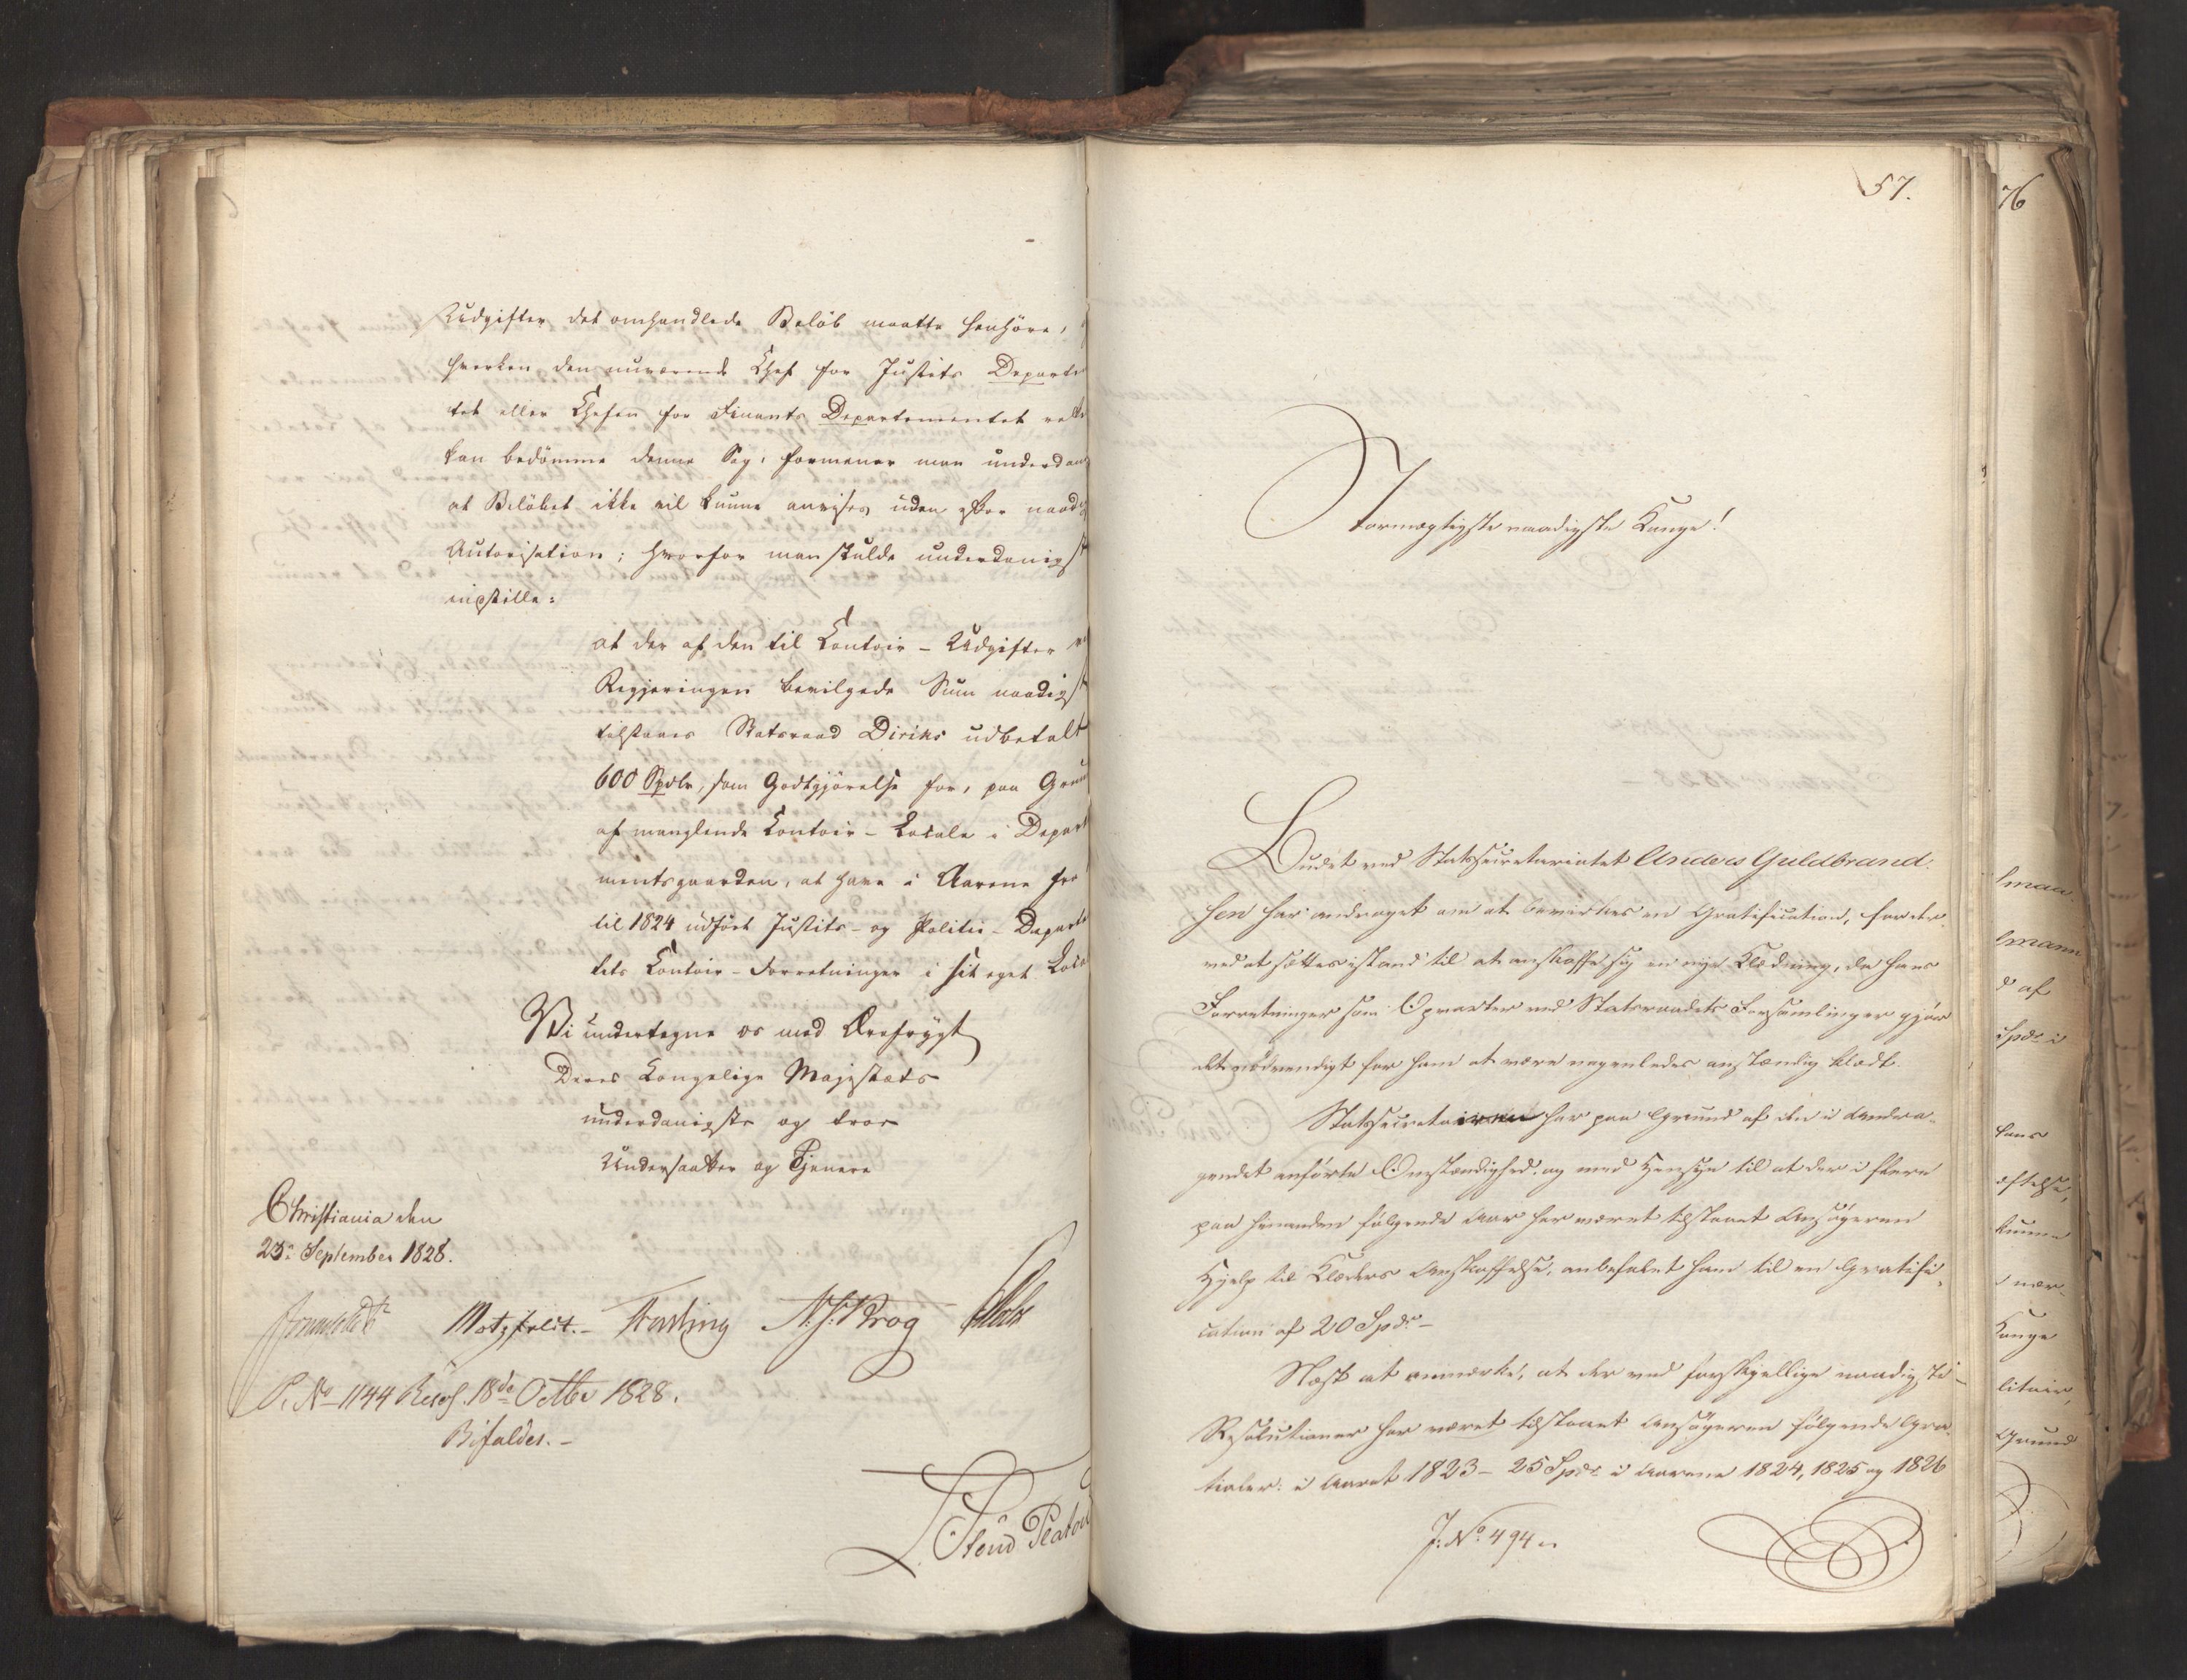 Udgifter det omhandlede Beløb maatte henhøre,
hverken den nuværende Chef for Justits Departe
tet eller Chefen for Finants Departementet rette
kan bedømme denne Sag, formener man underdan
at Beløbet ikke vil kunne anvises uden efter naadig
Autorisation; hvorfor man skulde underdanigst
indstille:
at der af den til Contoir-Udgifter ve
Regjeringen bevilgede Sum naadigst
tilstaaes Statsraad Diriks udbetalt
600 Spdlr, som Godtgjørelse for, paa Grun
af manglende Contoir-Locale i Depart
mentsgaarden, at have i Aarene fra
til 1824 udført Justits- og Politie-Departe
tets Contoir-Forretninger i sit eget Loca
Vi undertegne os med Ærefrygt
Deres Kongelige Majestæts
underdanigste og troe
Undersaatter og Tjenere
Christiania den
23de September 1828.
Motzfeldt.- Fasting N. J. Krog
P. No 1144 Resol. 18de Octbr 1828.
Bifaldes.-
57.
Stormægtigste naadigste Konge!
Budet ved Statssecretariatet Anders Guldbrand-
sen har andraget om at bevirkes en Gratification, for der-
ved at sættes istand til at anskaffe sig en nye Klædning, da hans
Forretninger som Opvarter ved Statsraadets Forsamlinger gjør
det nødvendigt for ham at være nogenledes anstændig klædt.
Statssecretairen har paa Grund af den i Andra-
gendet anførte Omstændighed, og med Hensyn til at der i flere
paa hinanden følgende Aar har været tilstaaet Ansøgeren
Hjelp til Klæders Anskaffelse, anbefalet ham til en Gratifi-
cation af 20 Spdr-
Næst at anmærke, at der ved forskjellige naadigste
Resolutioner har været tilstaaet Ansøgeren følgende Gra-
tialer: i Aaret 1823 - 25 Spdr i Aarene 1824, 1825 og 1826
J: No 494
76
lmaa
lmann
d af
Spdr i
hans
kunne
i nær-
Konge
litair,
Grund